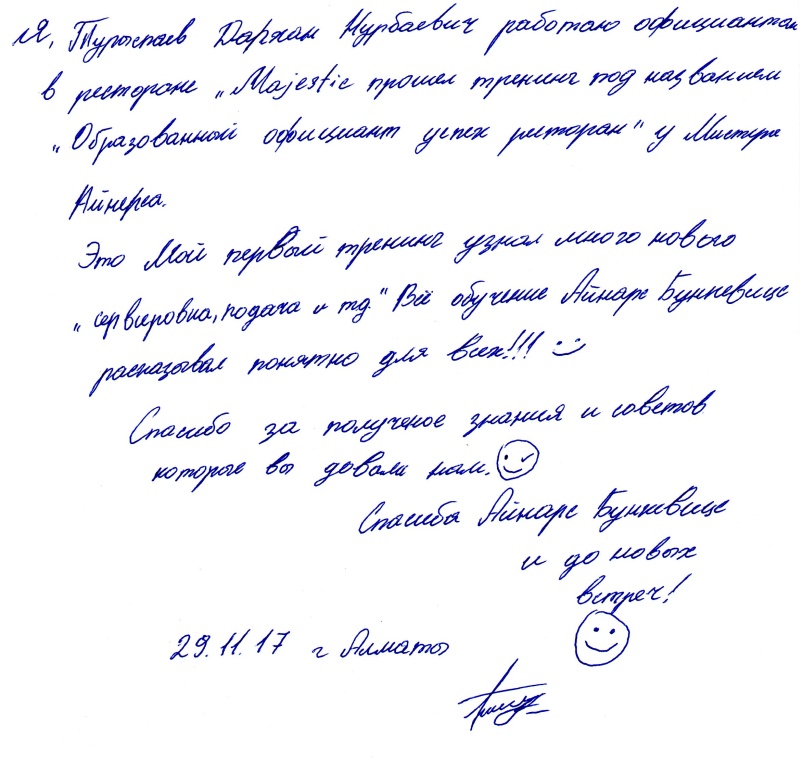 Я, Турыспаев Даржан Нурбаевич работаю официантом
в ресторане „Majestic прошел тренинг под названием
„Образованный официант успех ресторан" у Мистера
Айнерса.
Это Мой первый тренинг узнал много нового
„сервировка, подача и тд" Всё обучение Айнарс Бункевице
расказывал понятно для всех!!!
Спасибо за полученое знания и советов
которые вы довали нам.
Спасиба Айнарс Бункевице
и до новых
встреч!
29.11.17 г Алматы